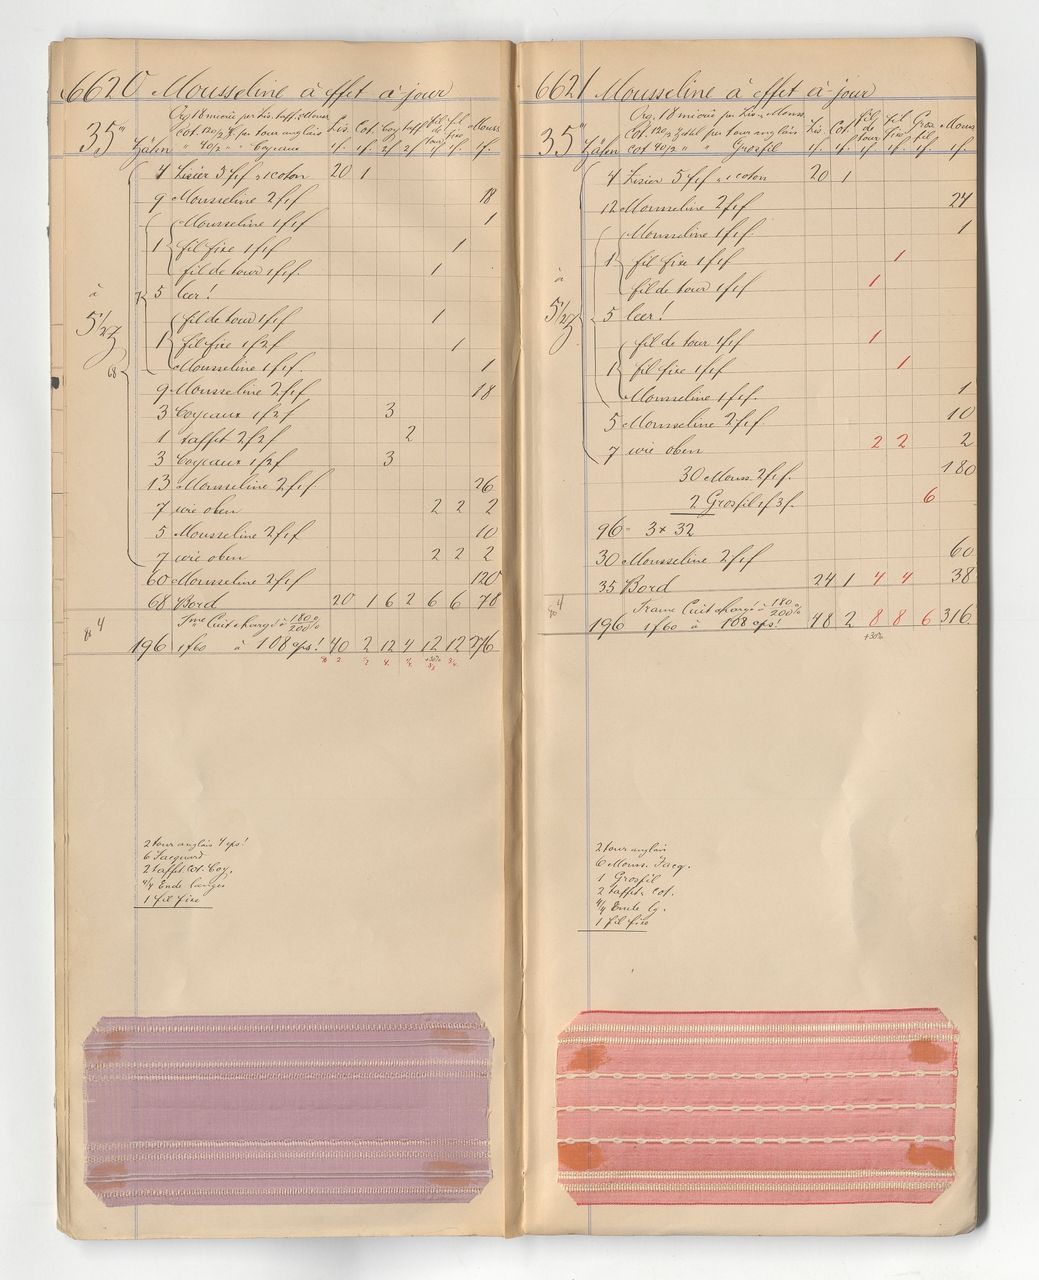 6620 Mousseline à effet à jour
Org. 18 per Lis. taff. Mouss
35''' cot. 120/2 per tour anglais Lis. Cot. Coy taff fil de tour fil fixe Mouss
Zähn " 40/2 " " Coyeaux 1f. 1f. 2f 2f 1f 1f. 1f.
4 Lisier 5f1f " 1 coton 20 1
9 Mousseline 2f1f 18
Mousseline 1f1f 1
1 fil fixe 1f1f 1
fil de tour 1f1f. 1
à
5 1/2
7 5 leer!
fil de tour 1f1f 1
1 fil fixe 1f2f 1
Mousseline 1f1f. 1
68
9 Mousseline 2f1f 18
3 Coyeaux 1f2f 3
1 taffet 2f2f 2
3 Coyeaux 1f2f 3
13 Mousseline 2f1f 26
7 wie oben 2 2 2
5 Mousseline 2f1f 10
7 wie oben 2 2 2
60 Mousseline 2f1f 120
68 Bord 20 1 6 2 6 6 78
Cuit chargé à 180/200%
4
196 1f60 à 108 cps! 40 2 12 4 12 12 276
+30%
2 tour anglais 4 cps!
6 Jacquard
2 taffet. cot. Coy.
4/4 Ende langes
1 fil fixe
6621 Mousseline à effet à jour
Org. 18 per Lis. Mouss.
35''' cot. 120/2 per tour anglais Lis. Cot. fil de tour fil fixe Gros fil Mouss
Zähn cot 40/2 " " Grosfil 1f. 1f. 1f 1f. 1f. 1f
4 Lisier 5f1f " 1 coton 20 1
12 Mousseline 2f1f 24
Mousseline 1f1f 1
1 fil fixe 1f1f 1
fil de tour 1f1f 1
à
5 1/2
5 leer!
fil de tour 1f1f 1
1 fil fixe 1f1f 1
Mousseline 1f1f. 1
5 Mousseline 2f1f. 10
7 wie oben 2 2 2
30 Mouss. 2f1f. 180
2 Grosfil 1f3f. 6
96 = 3 x 32
30 Mousseline 2f1f 60
35 Bord 24 1 4 4 38
Trame Cuit chargé à 180/200%
4
196 1f60 à 108 cps! 48 2 8 8 6 316.
+30%
2 tour anglais
6 Mouss. Jacq.
1 Grosfil
2 taffet. cot.
4/4 Ende lg.
1 fil fixe